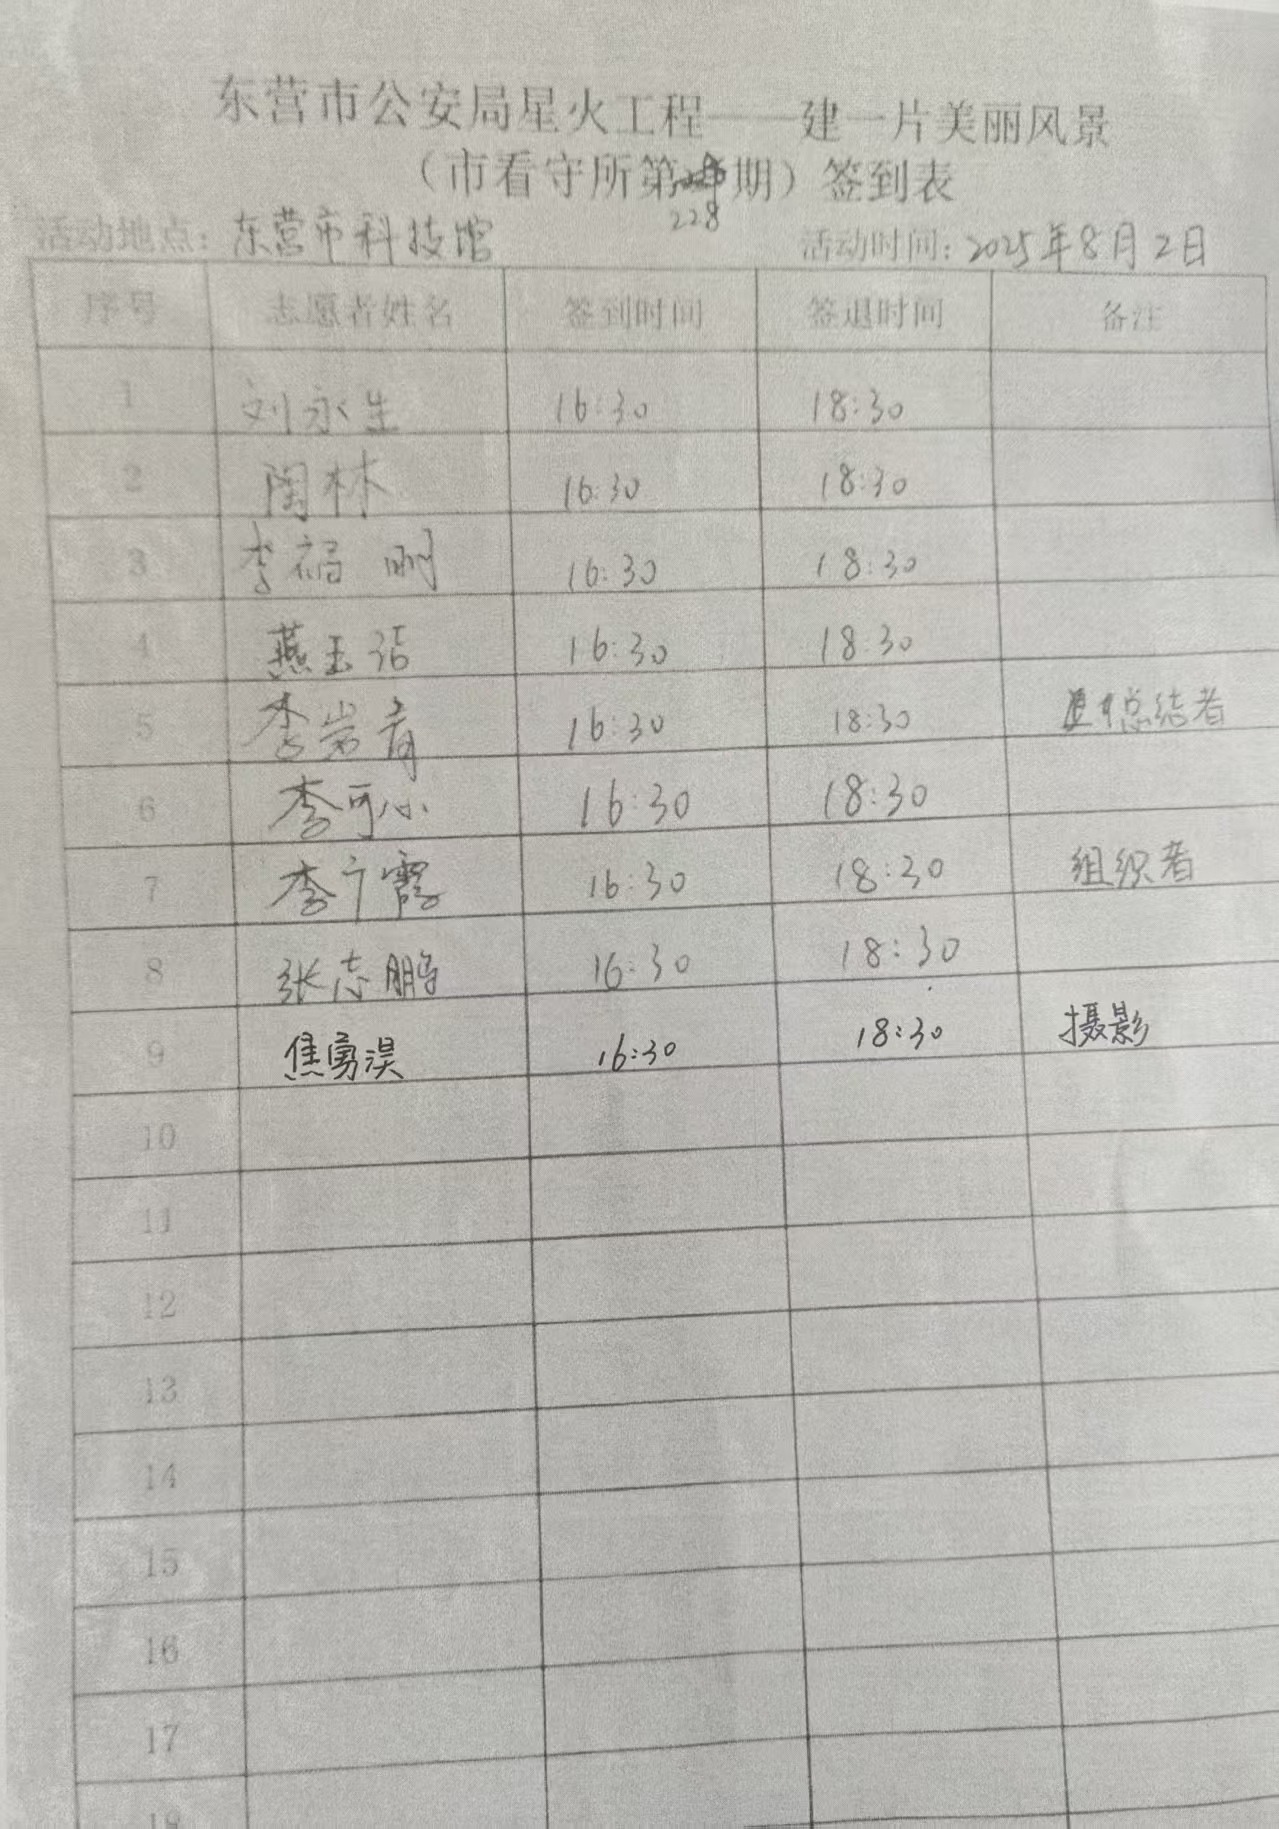 东营市公安局星火工程——建一片美丽风景
（市看守所第228期）签到表
活动地点：东营市科技馆 活动时间：2025年8月2日
序号 志愿者姓名 签到时间 签退时间 备注
1 刘永生 16:30 18:30
2 陶林 16:30 18:30
3 李福刚 16:30 18:30
4 燕玉洁 16:30 18:30
5 李岩青 16:30 18:30 总结者
6 李可心 16:30 18:30
7 李广霞 16:30 18:30 组织者
8 张志鹏 16:30 18:30
9 焦勇淏 16:30 18:30 摄影
10
11
12
13
14
15
16
17
18